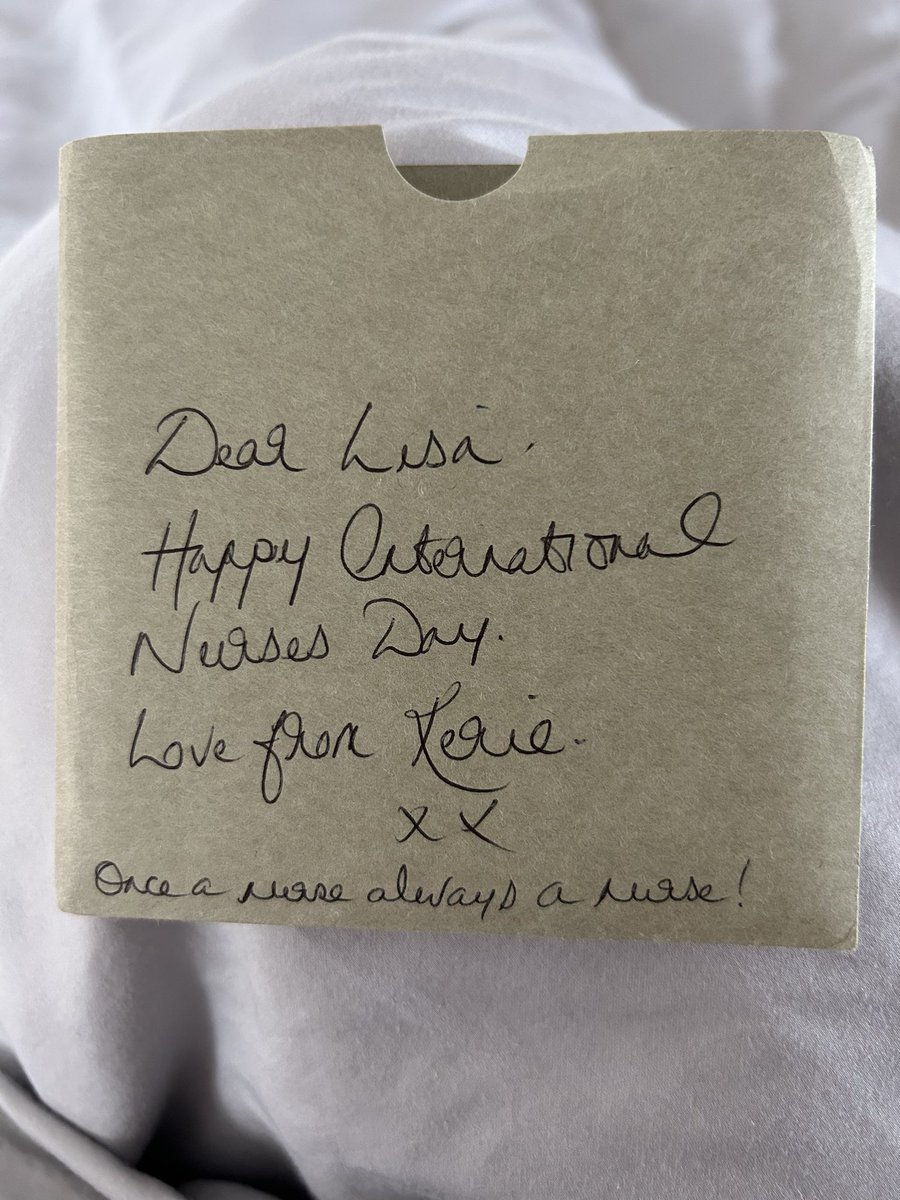 Dear Lisa.
Happy International
Nurses Day.
Love from Kerie.
xx
Once a nurse always a nurse!